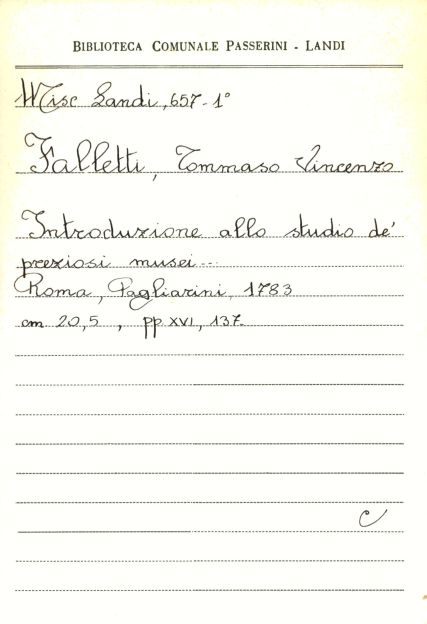 BIBLIOTECA COMUNALE PASSERINI - LANDI
Misc Landi, 657-1°
Falletti, Tommaso Vincenzo
Introduzione allo studio de'
preziosi musei...
Roma, Pagliarini, 1783
cm 20,5, pp. XVI, 137.
C